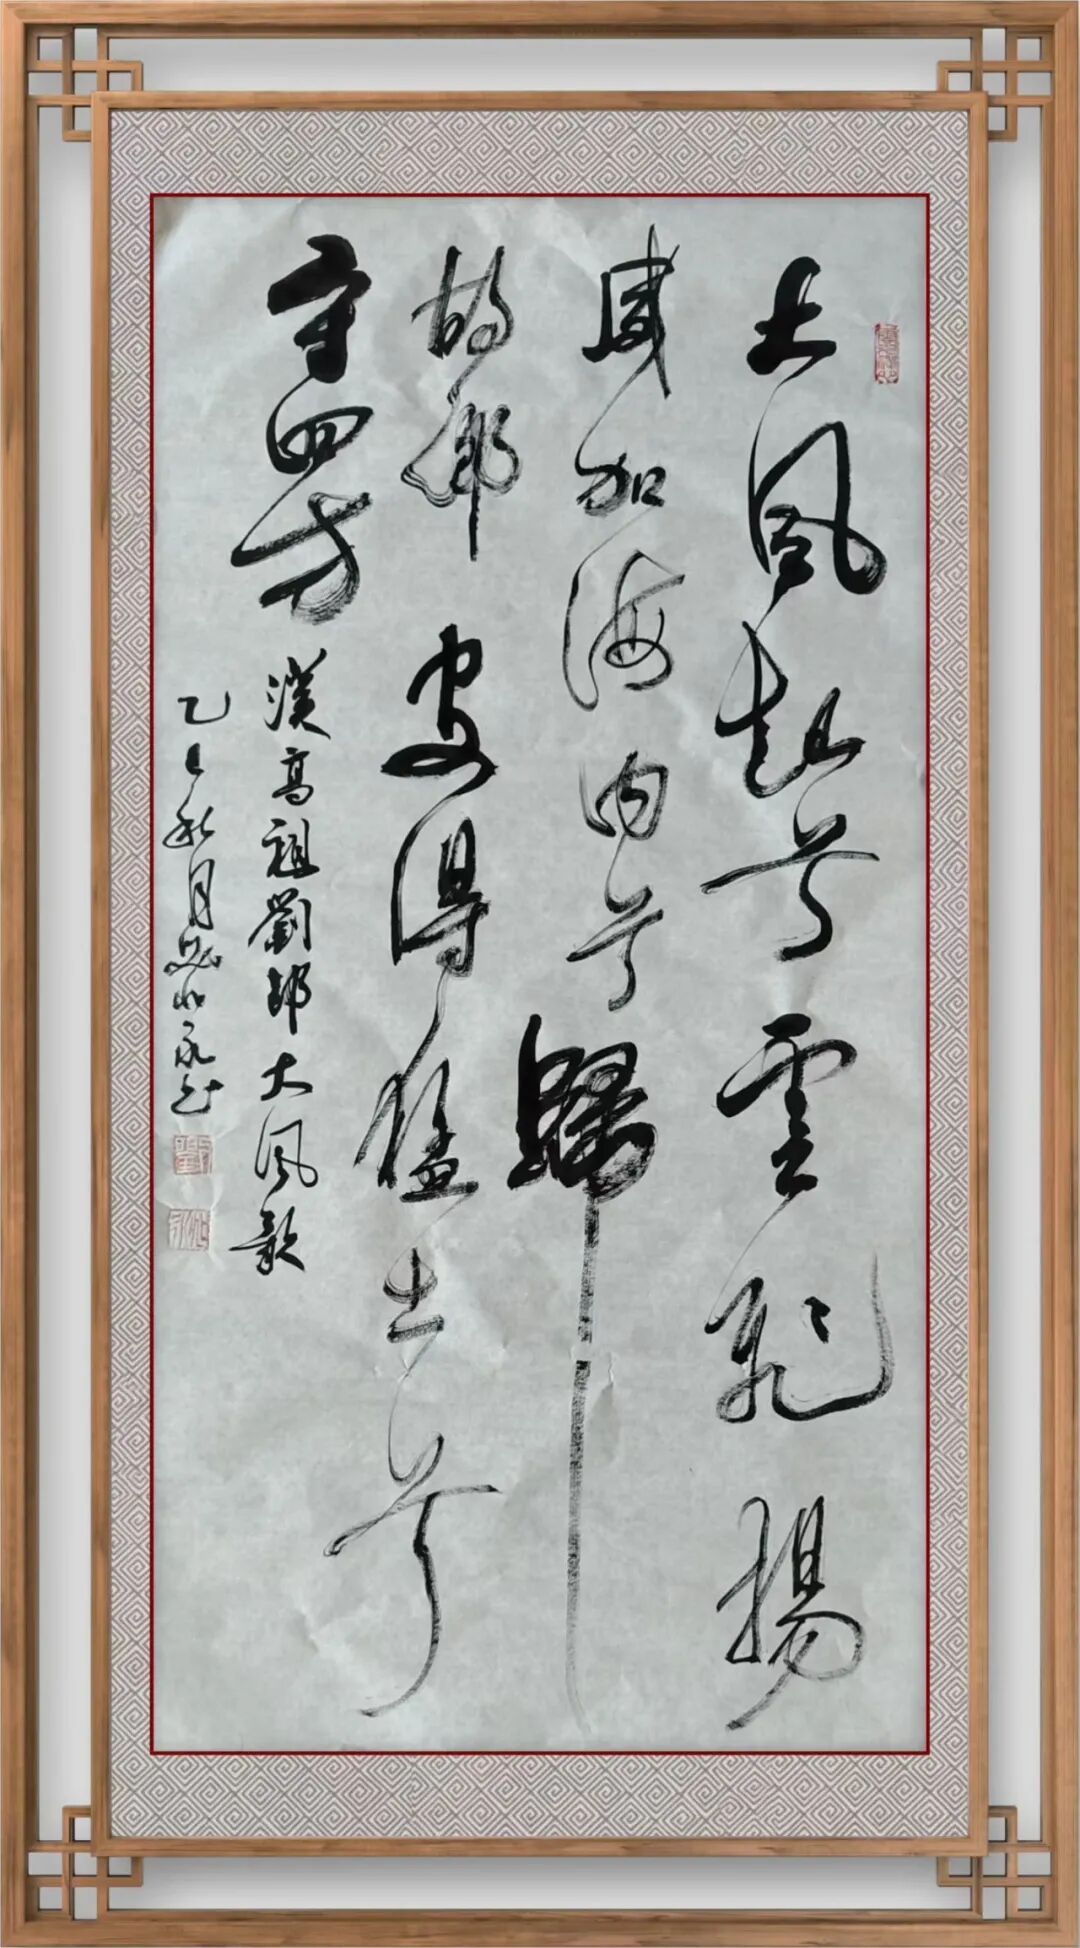 大風起兮雲飛揚
威加海内兮歸
故鄉安得猛士兮
守四方 漢高祖劉邦大風歌
乙巳秋月